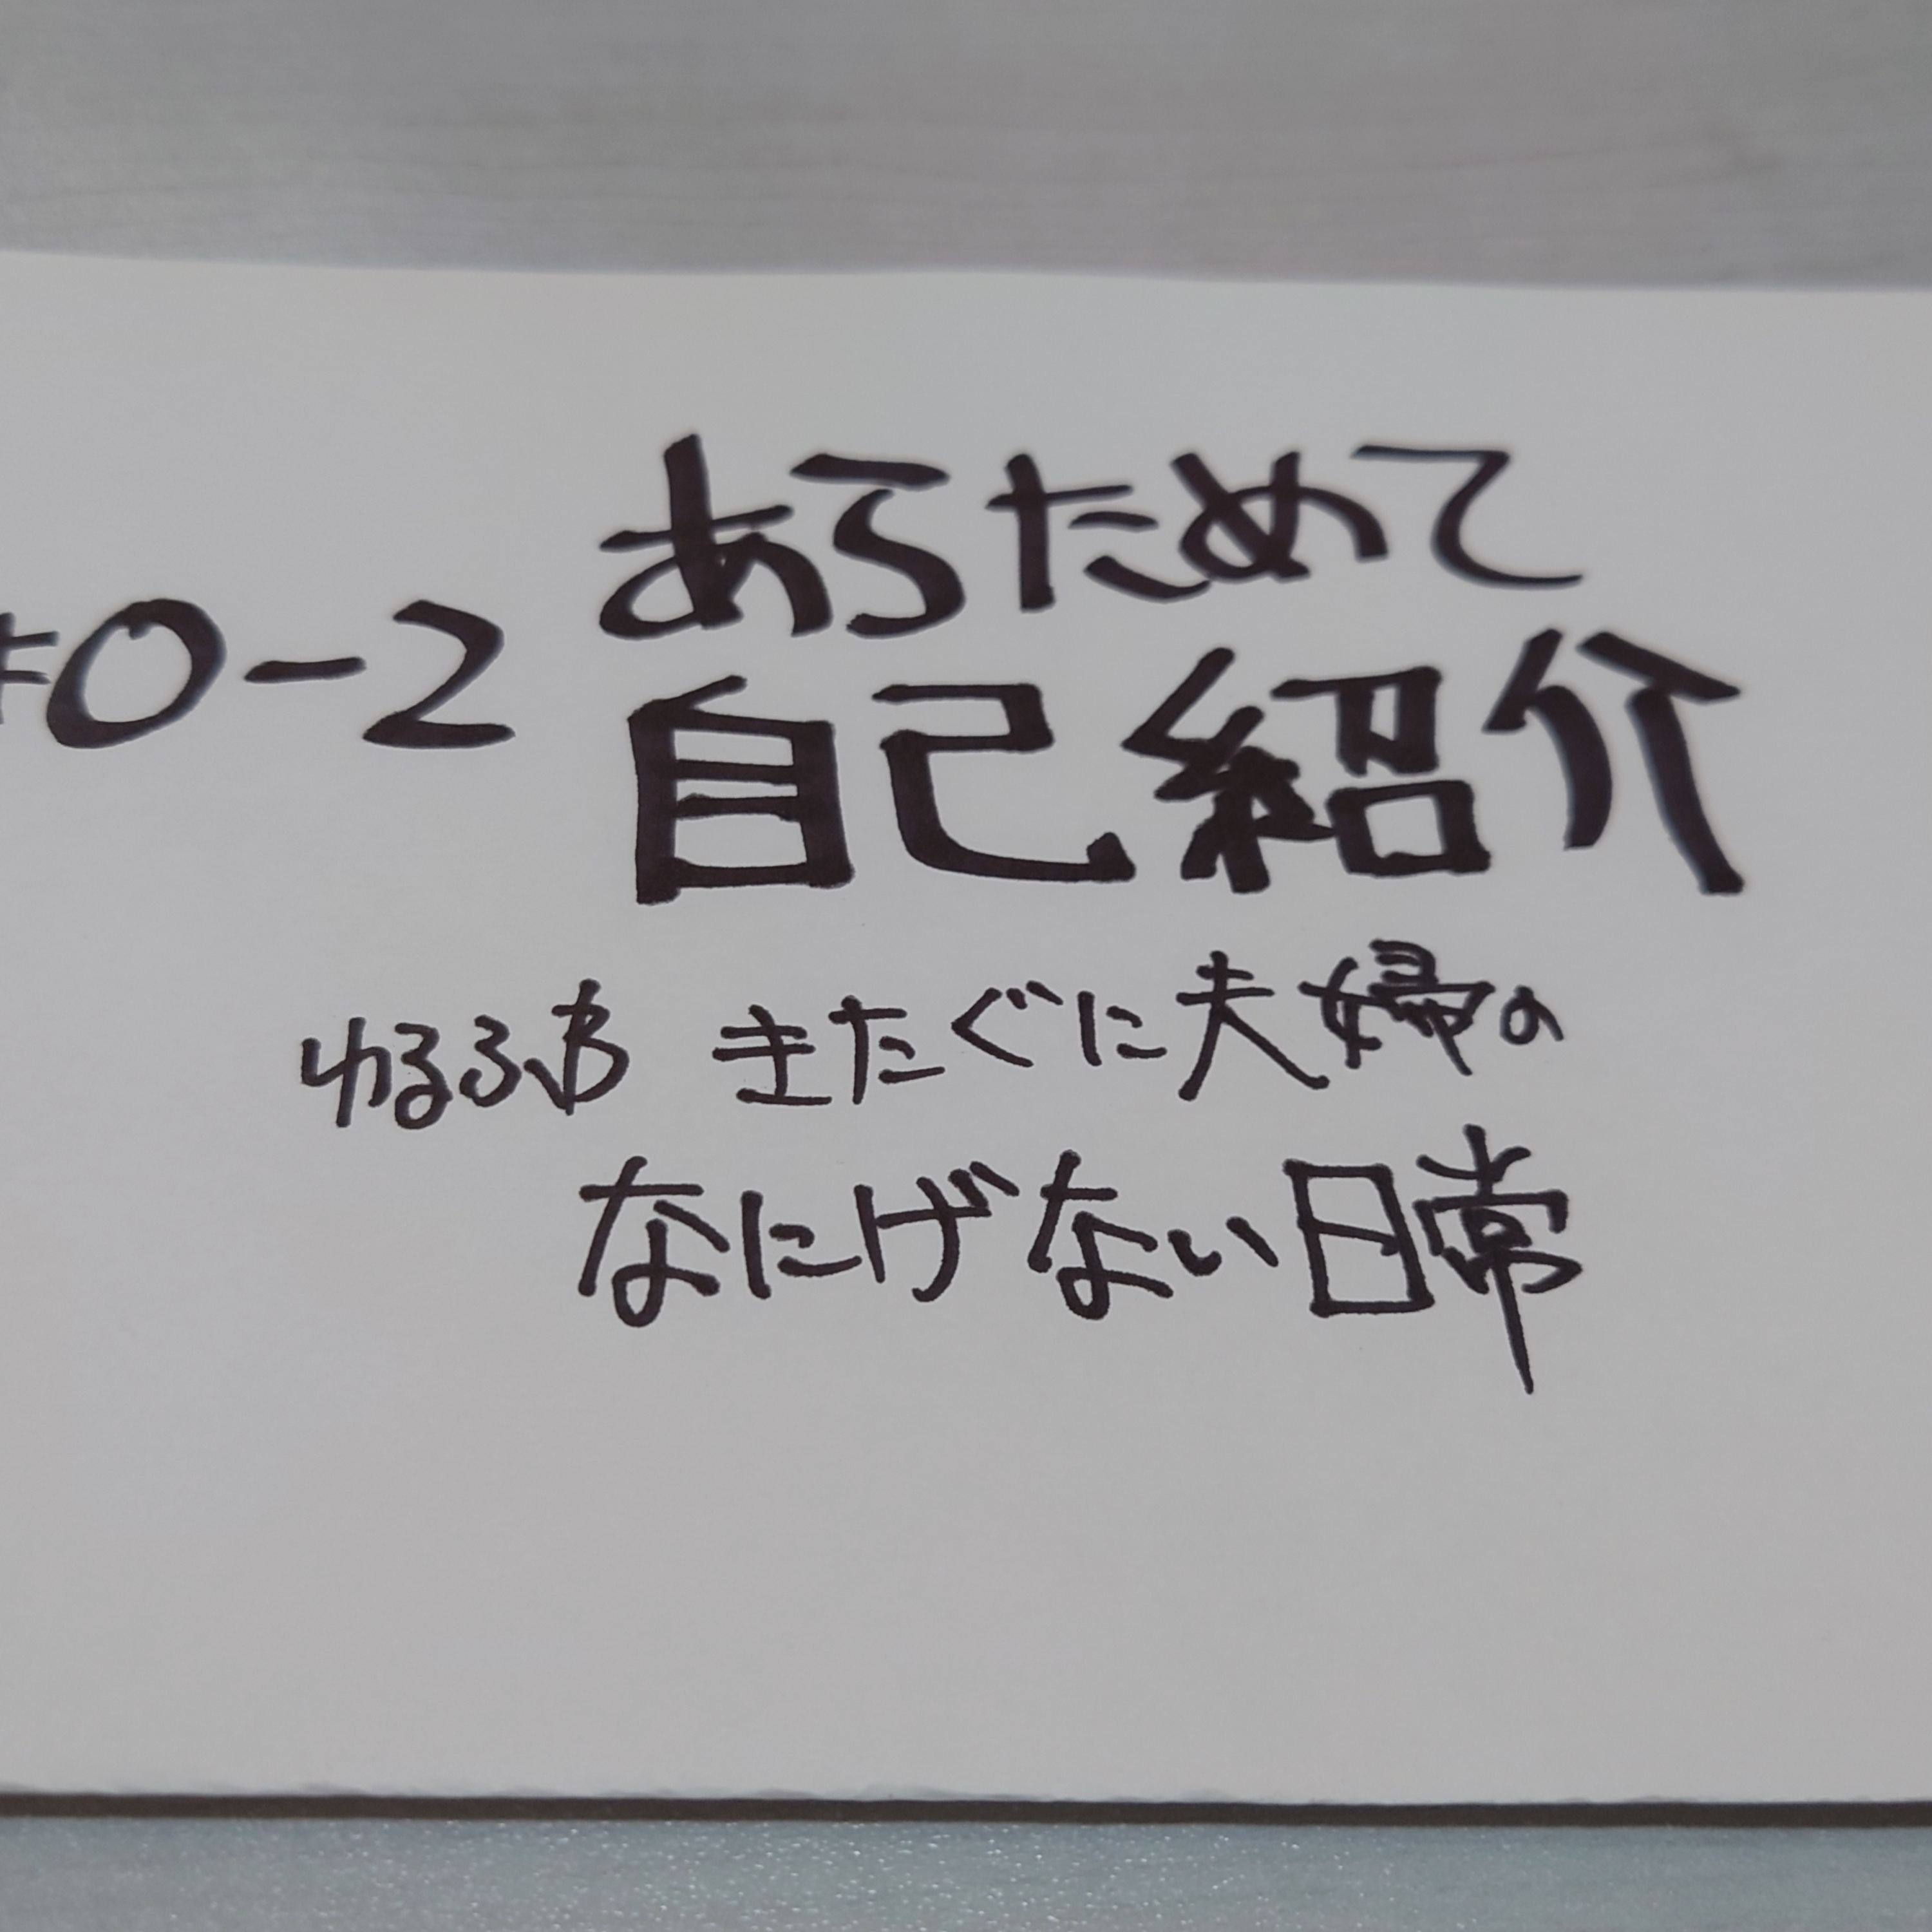 あらためて
#0-2
自己紹介
ゆるふわ きたぐに夫婦の
なにげない日常